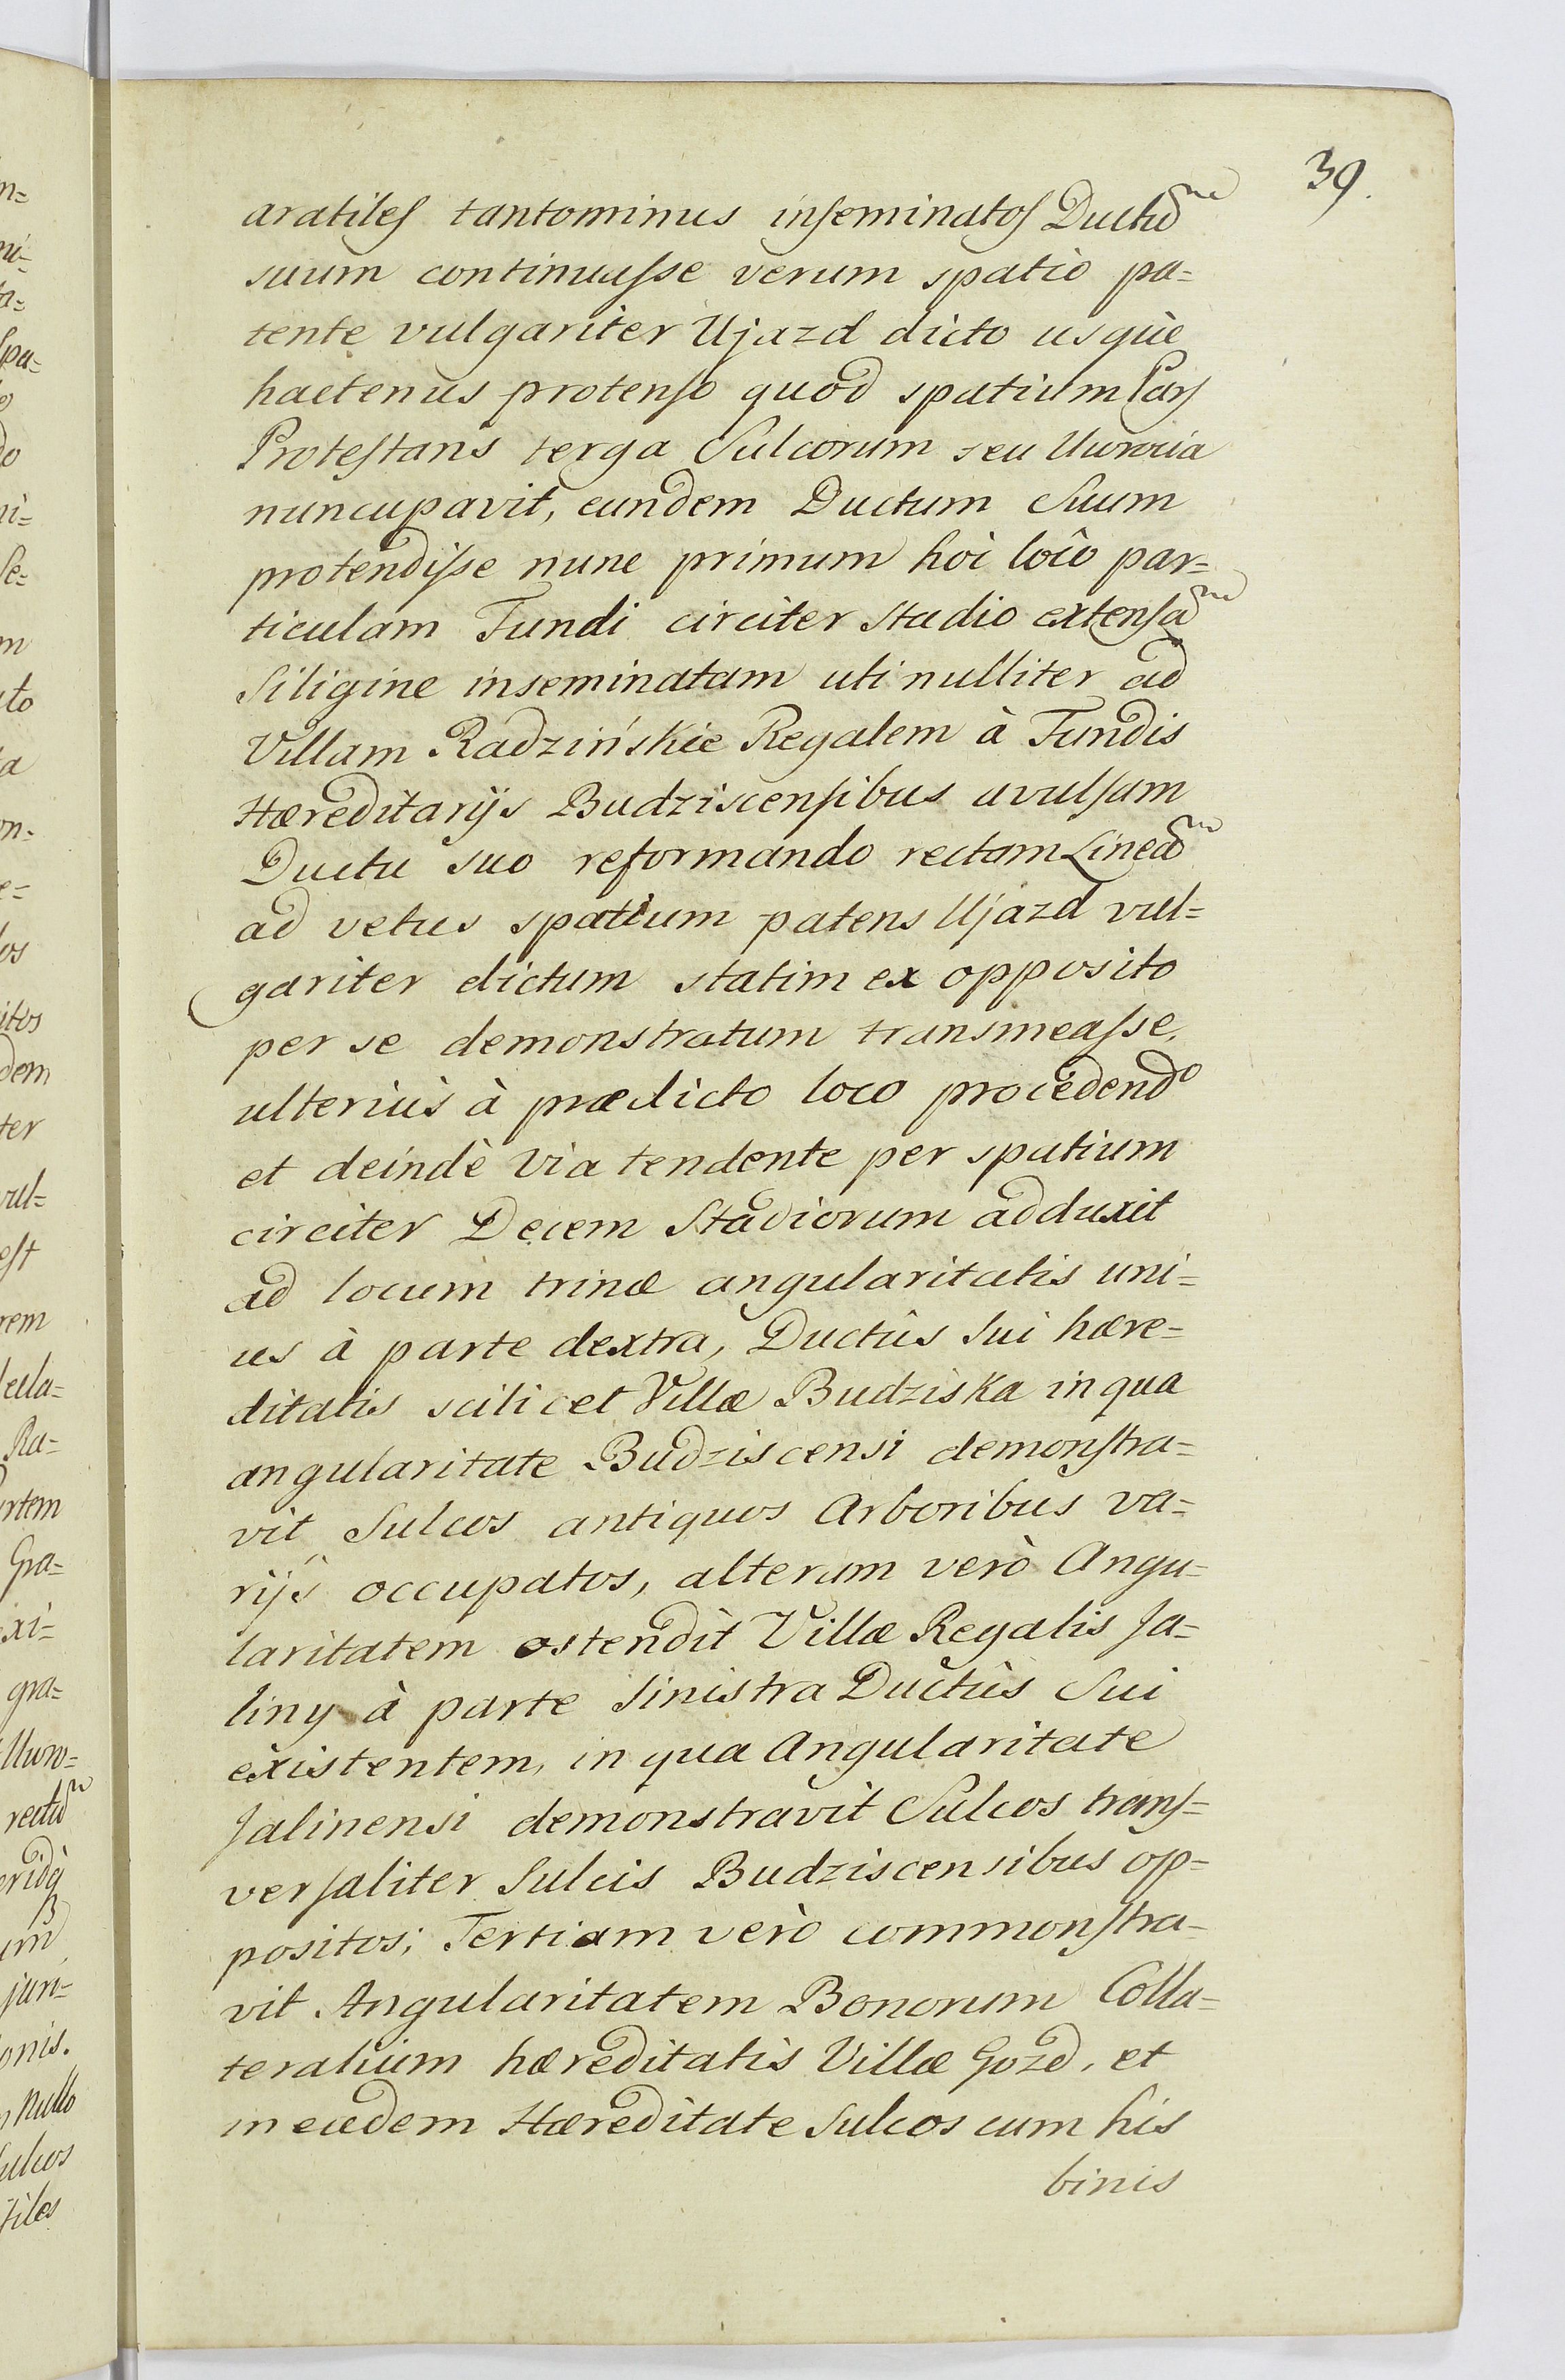 39.
aratiles tantominus inseminatos Ductũ
suum continuasse verum spatio pa=
tente vulgariter Ujazd dicto usque
hactenus protenso quod spatium Pars
Protestans terga Sulcorum seu Uwrocia
nuncupavit, eundem Ductum Suum
protendisse nunc primum hoi loco par=
ticulam Fundi circiter stadio extensã
Siligine inseminatam uti nulliter ad
Villam Radzińskie Regalem à Fundis
Hæreditarijs Budziscensibus avulsam
Ductu suo reformando rectam Lineã
ad vetus spatium patens Ujazd vul=
gariter dictum statim ex opposito
per se demonstratum transmeasse,
ulterius à prædicto loco procedendo
et deindè via tendente per spatium
circiter Decem Stadiorum adduxit
ad locum trinæ angularitatis uni=
us à parte dextra, Ductûs sui hære=
ditatis scilicet Villæ Budziska in qua
angularitate Budziscensi demonstra=
vit Sulcos antiquos Arboribus va=
rijs occupatos, alteram verò Angu=
laritatem ostendit Villæ Regalis Ja=
liny à parte Sinistra Ductûs Sui
existentem, in qua Angularitate
Jalinensi demonstravit Sulcos trans=
versaliter Sulcis Budziscensibus op=
positos; Tertiam verò commonstra=
vit Angularitatem Bonorum Colla=
teralium hæreditatis Villæ Gozd, et
in eadem Hæreditate Sulcos cum his
binis